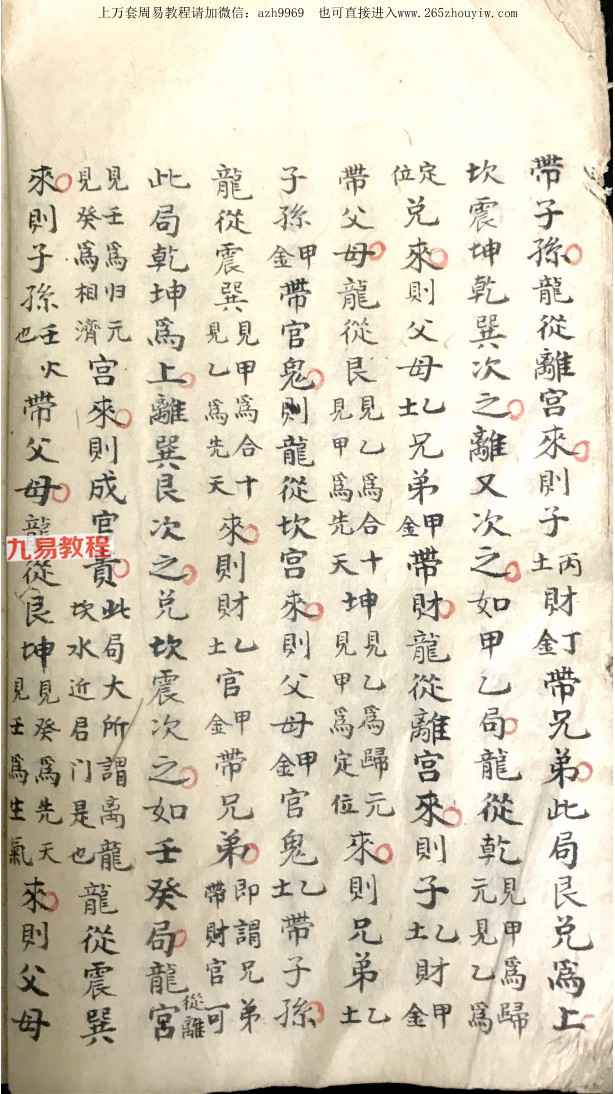 上万套周易教程请加微信：azh9969　也可直接进入www.265zhouyiw.com
帶子孫龍從離宮來則子丙土財丁金帶兄弟此局艮兌爲上
坎震坤乾巽次之離又次之如甲乙局龍從乾見甲爲歸元見乙爲
定位兌來則父母乙土兄弟甲金帶財龍從離宮來則子乙土財甲金
帶父母龍從艮見乙爲合十見甲爲先天坤見乙爲歸元見甲爲定位來則兄弟乙土
子孫甲金帶官鬼則龍從坎宮來則父母甲金官鬼乙土帶子孫
龍從震巽見甲爲合十見乙爲先天來則財乙土官甲金帶兄弟即謂兄弟帶財官可
此局乾坤爲上離巽艮次之兌坎震次之如壬癸局龍從離宮
見壬爲归元見癸爲相濟宮來則成官貢此局大所謂离龍坎水近君门是也龍從震巽
來則子孫壬火也帶父母龍從艮坤見癸爲先天見壬爲生氣來則父母
九易教程